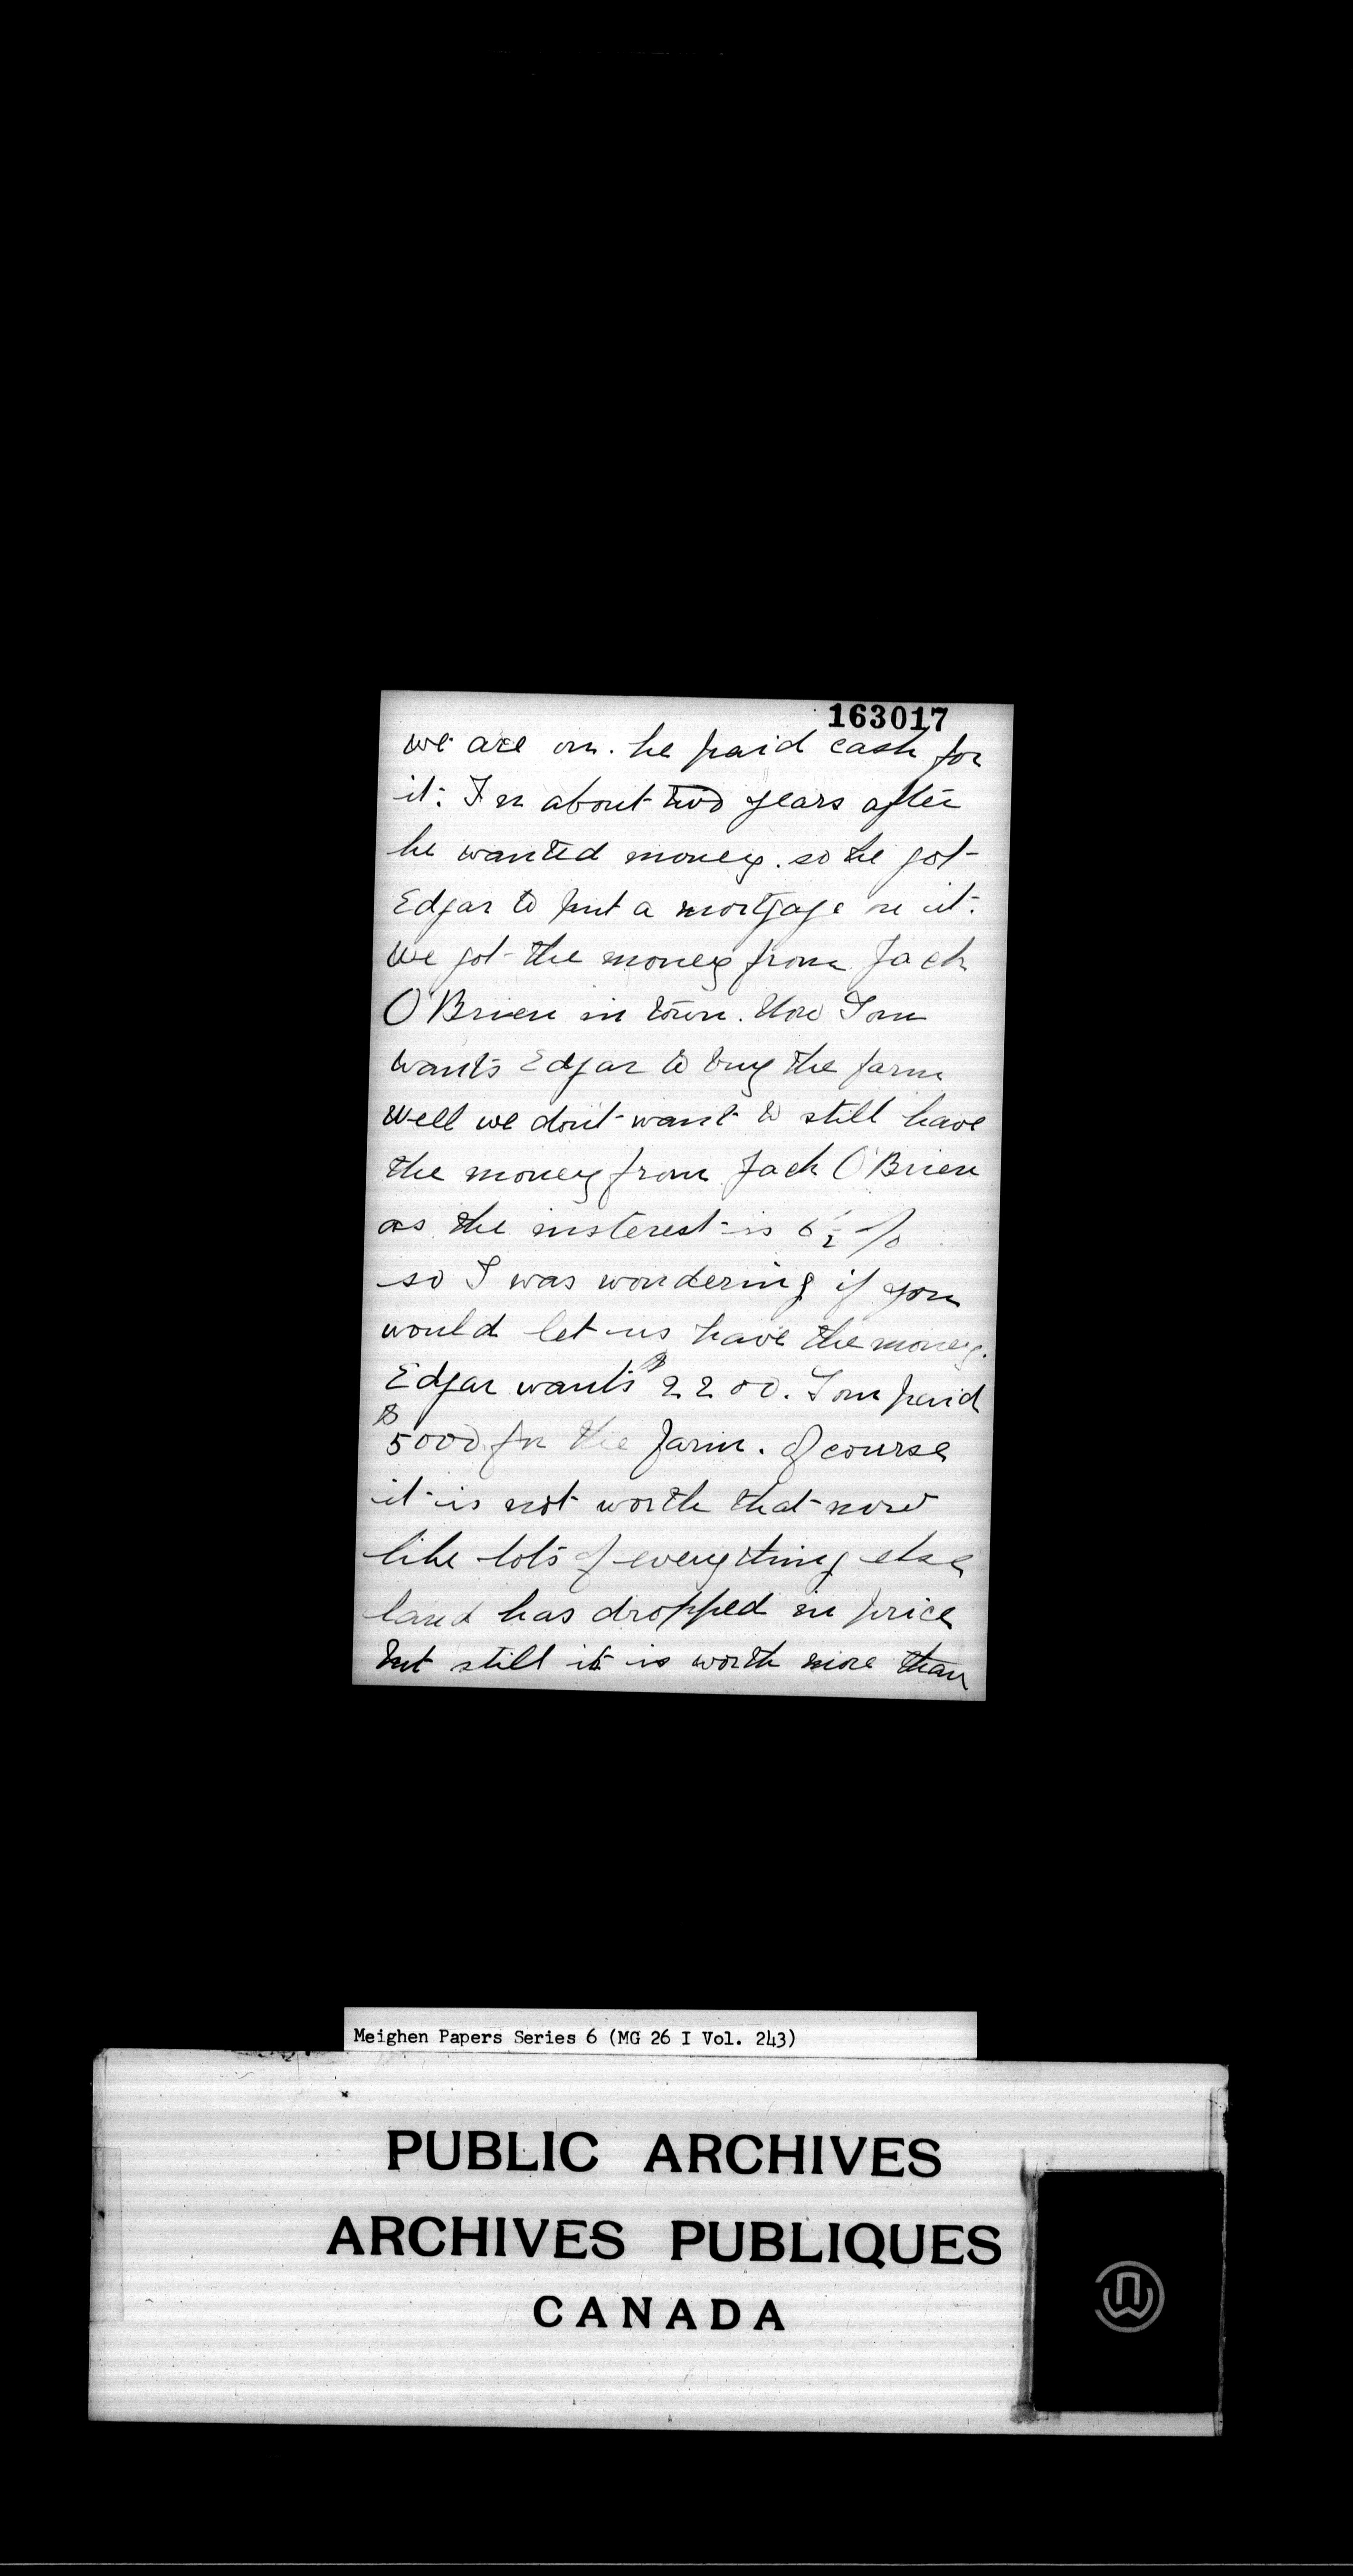 163017
we are on. he paid cash for
it. In about two years after
he wanted money. so he got
Edgar to put a mortgage on it.
We got the money from Jack
O'Brien in town. Now Tom
wants Edgar to buy the farm
Well we don't want to still have
the money from Jack O'Brien
as the insterest is 6 1/2 %
so I was wondering if you
would let us have the money.
Edgar wants $2200. Tom paid
$5000 for the farm. Of course
it is not worth that now
like lots of everything else
land has dropped in price
but still it is worth more than
Meighen Papers Series 6 (MG 26 I Vol. 243)
PUBLIC ARCHIVES
ARCHIVES PUBLIQUES
CANADA